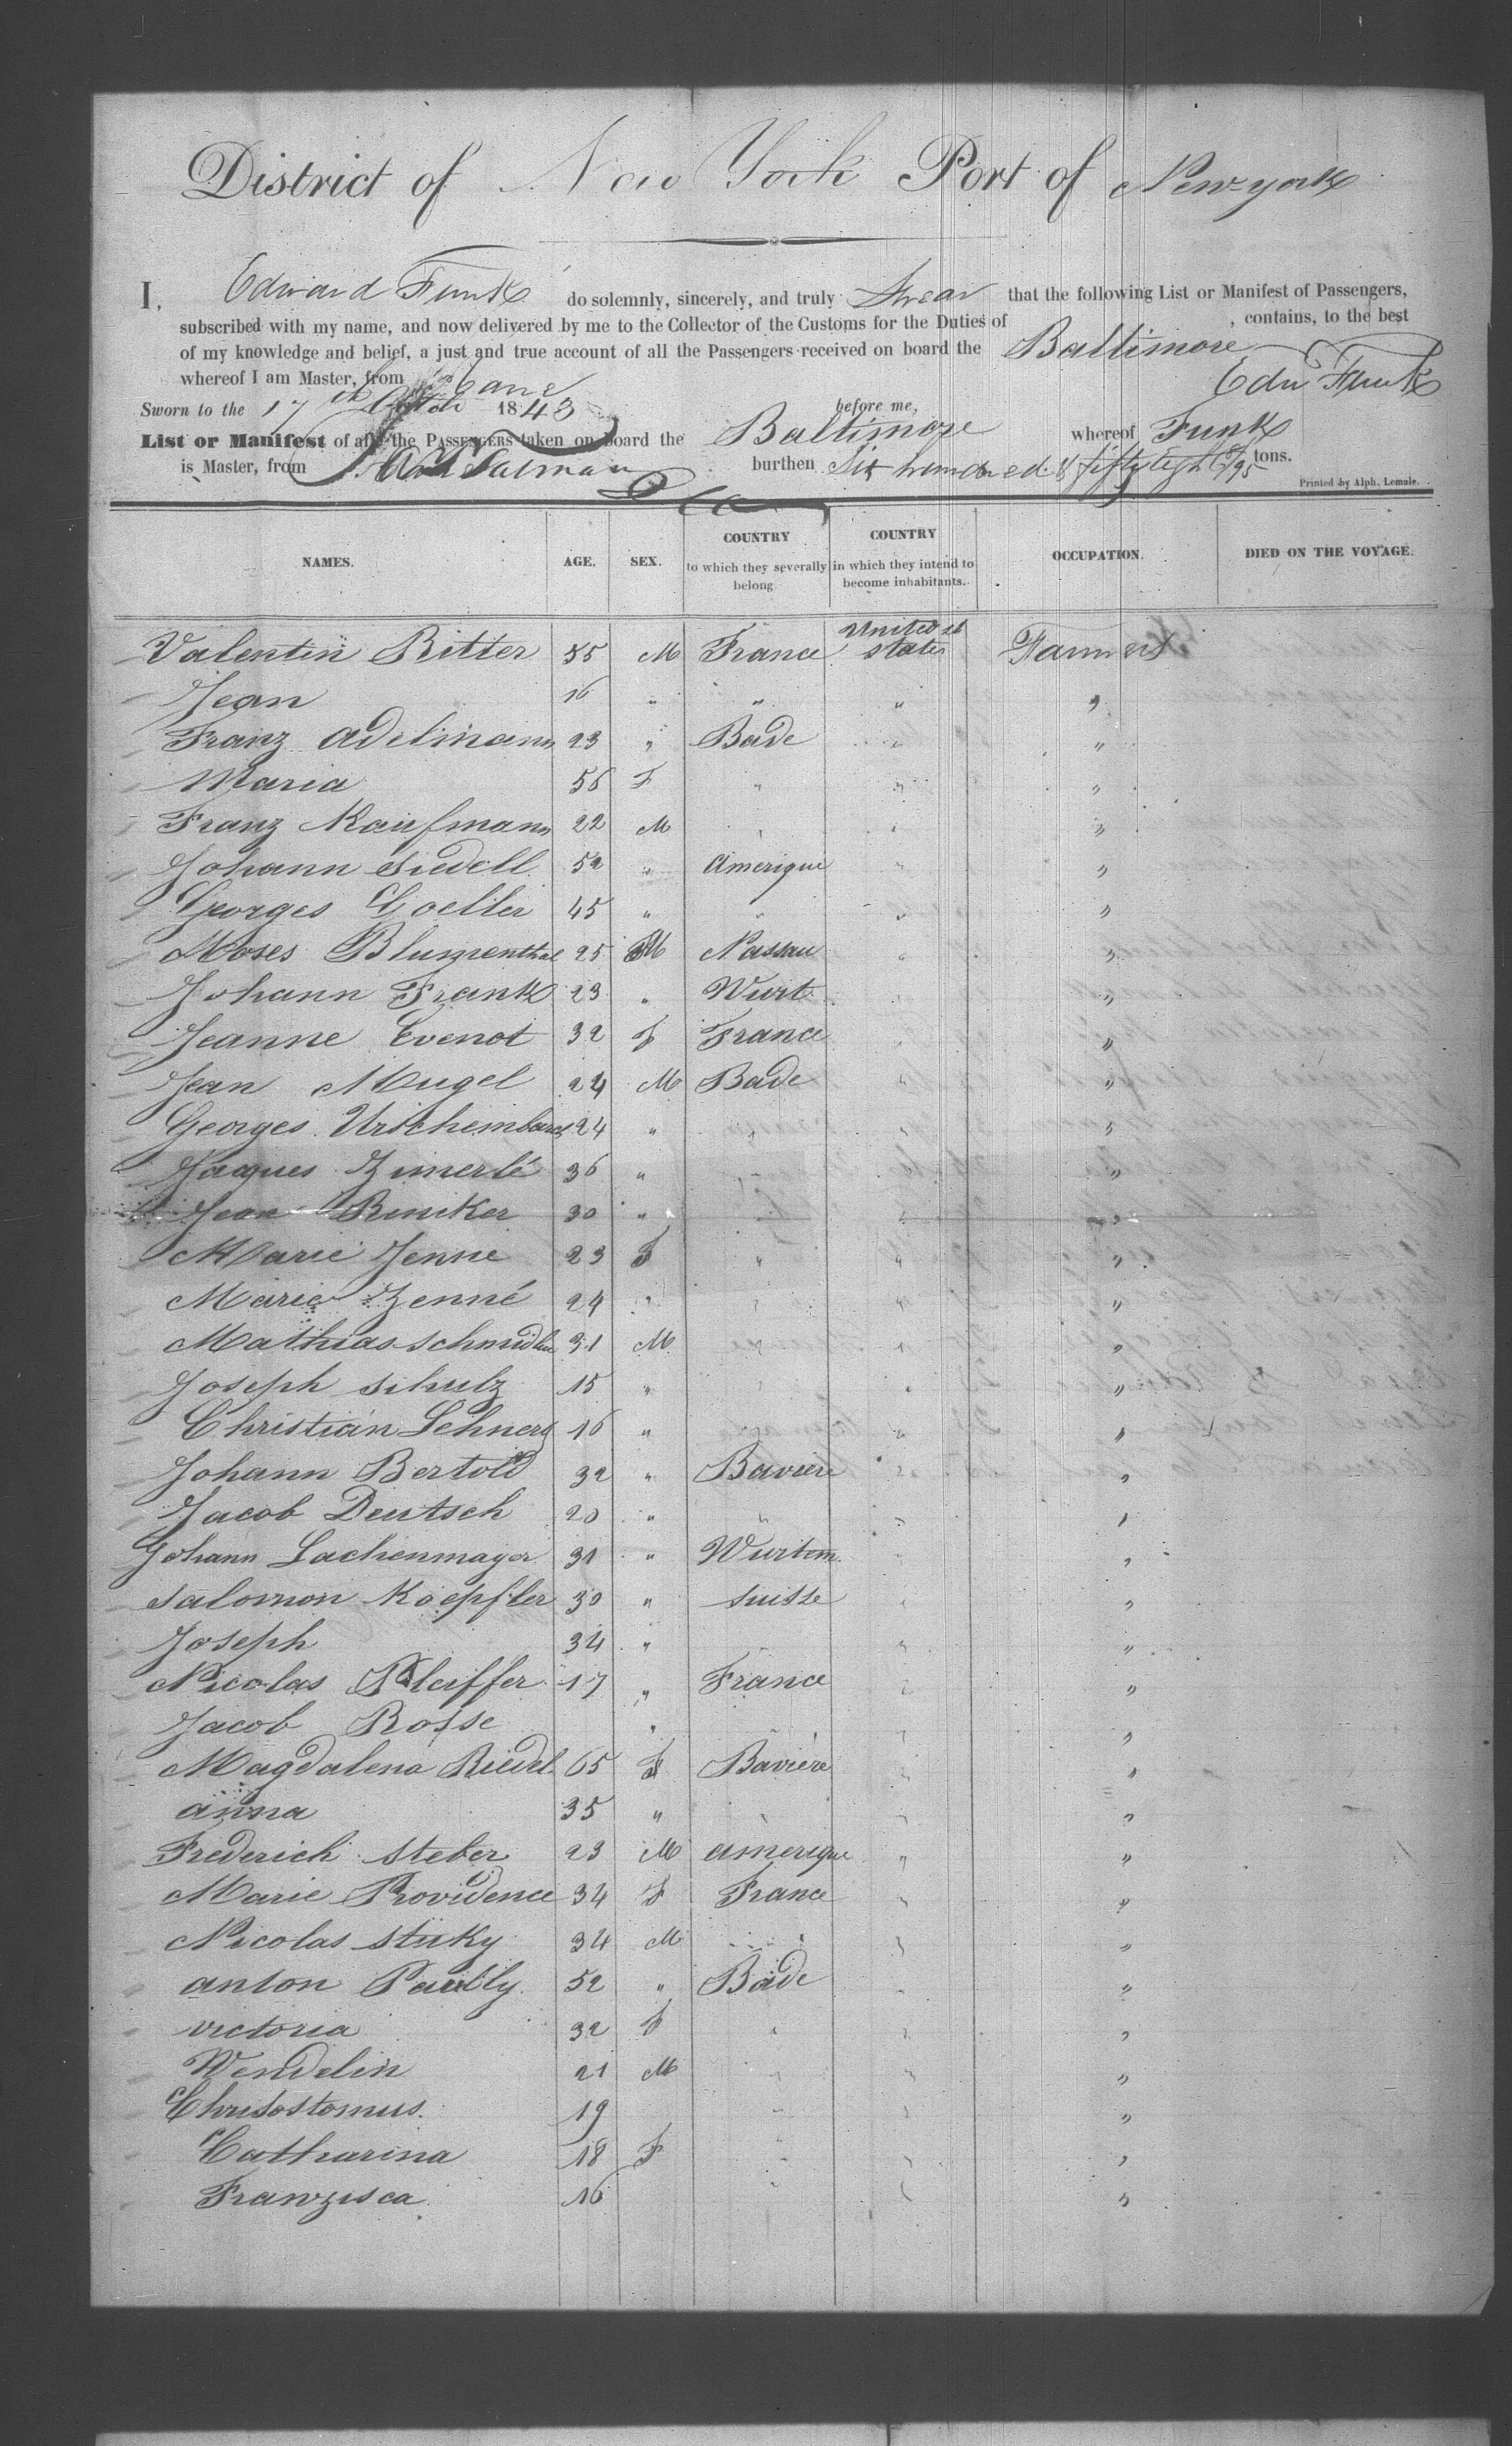 District of New York Port of New-york
I, Edward Funk do solemnly, sincerely, and truly Swear that the following List or Manifest of Passengers,
subscribed with my name, and now delivered by me to the Collector of the Customs for the Duties of , contains, to the best
of my knowledge and belief, a just and true account of all the Passengers received on board the Baltimore
whereof I am Master, from Havre Edw Funk
Sworn to the 17 th 1843 before me,
List or Manifest of all the PASSENGERS taken on board the Baltimore whereof Funk
is Master, from burthen Six hundred & fifty eight tons.
Printed by Alph. Lemale.
NAMES. AGE. SEX. COUNTRY to which they severally belong COUNTRY in which they intend to become inhabitants. OCCUPATION. DIED ON THE VOYAGE.
Valentin Ritter 35 M France United states Farmers
Jean 16 " " " "
Franz Adelmann 23 " Bade " "
Maria 56 F " " "
Franz Kaufmann 22 M " " "
Johann Siedell 52 " Amerique " "
Georges Goeller 45 " " " "
Moses Blumenthal 25 M Nassau " "
Johann Frank 23 " Wurt. " "
Jeanne Evenot 32 F France " "
Jean Mugel 24 M Bade " "
Georges 24 " " " "
Jaques Zimerlé 36 " " " "
Jean Riniker 30 " " " "
Marie Jenne 23 F " " "
Maria Zenné 24 " " " "
Mathias Schmidlin 31 M " " "
Joseph Schulz 15 " " " "
Christian Lehners 16 " " " "
Johann Bertold 32 " Baviere " "
Jacob Deutsch 20 " " " "
Johann Lachenmayer 31 " Wurtem. " "
Salomon Koepfler 30 " Suisse " "
Joseph 34 " " " "
Nicolas Pleiffer 17 " France " "
Jacob Rosse " " "
Magdalena Riedel 65 F Baviére " "
Anna 35 " " " "
Frederich Steber 23 M Amerique " "
Marie Providence 34 F France " "
Nicolas Stuky 34 M " " "
Anton Paully 52 " Bade " "
Victoria 32 F " " "
Wendelin 21 M " " "
Chrisostomus 19 " " "
Catharina 18 F " " "
Franzisca 16 " " "